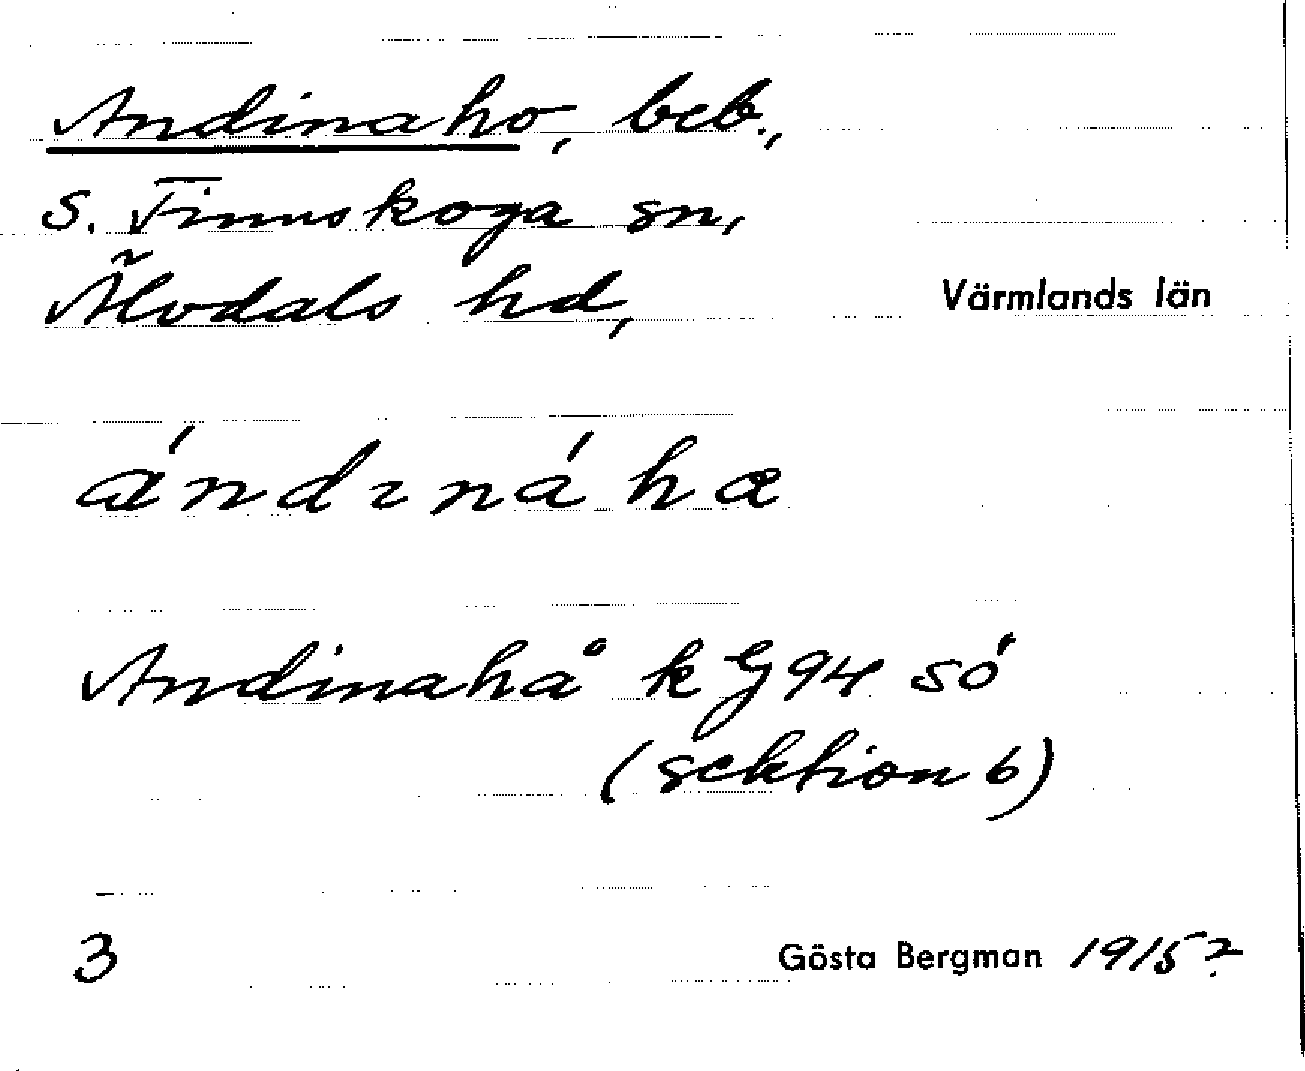 Andinaho, beb.,
S. Finnskoga sn,
Älvdals hd, Värmlands län
ándınáhæ
Andinahå k G 94 só
(sektion 6)
3 Gösta Bergman 1915?